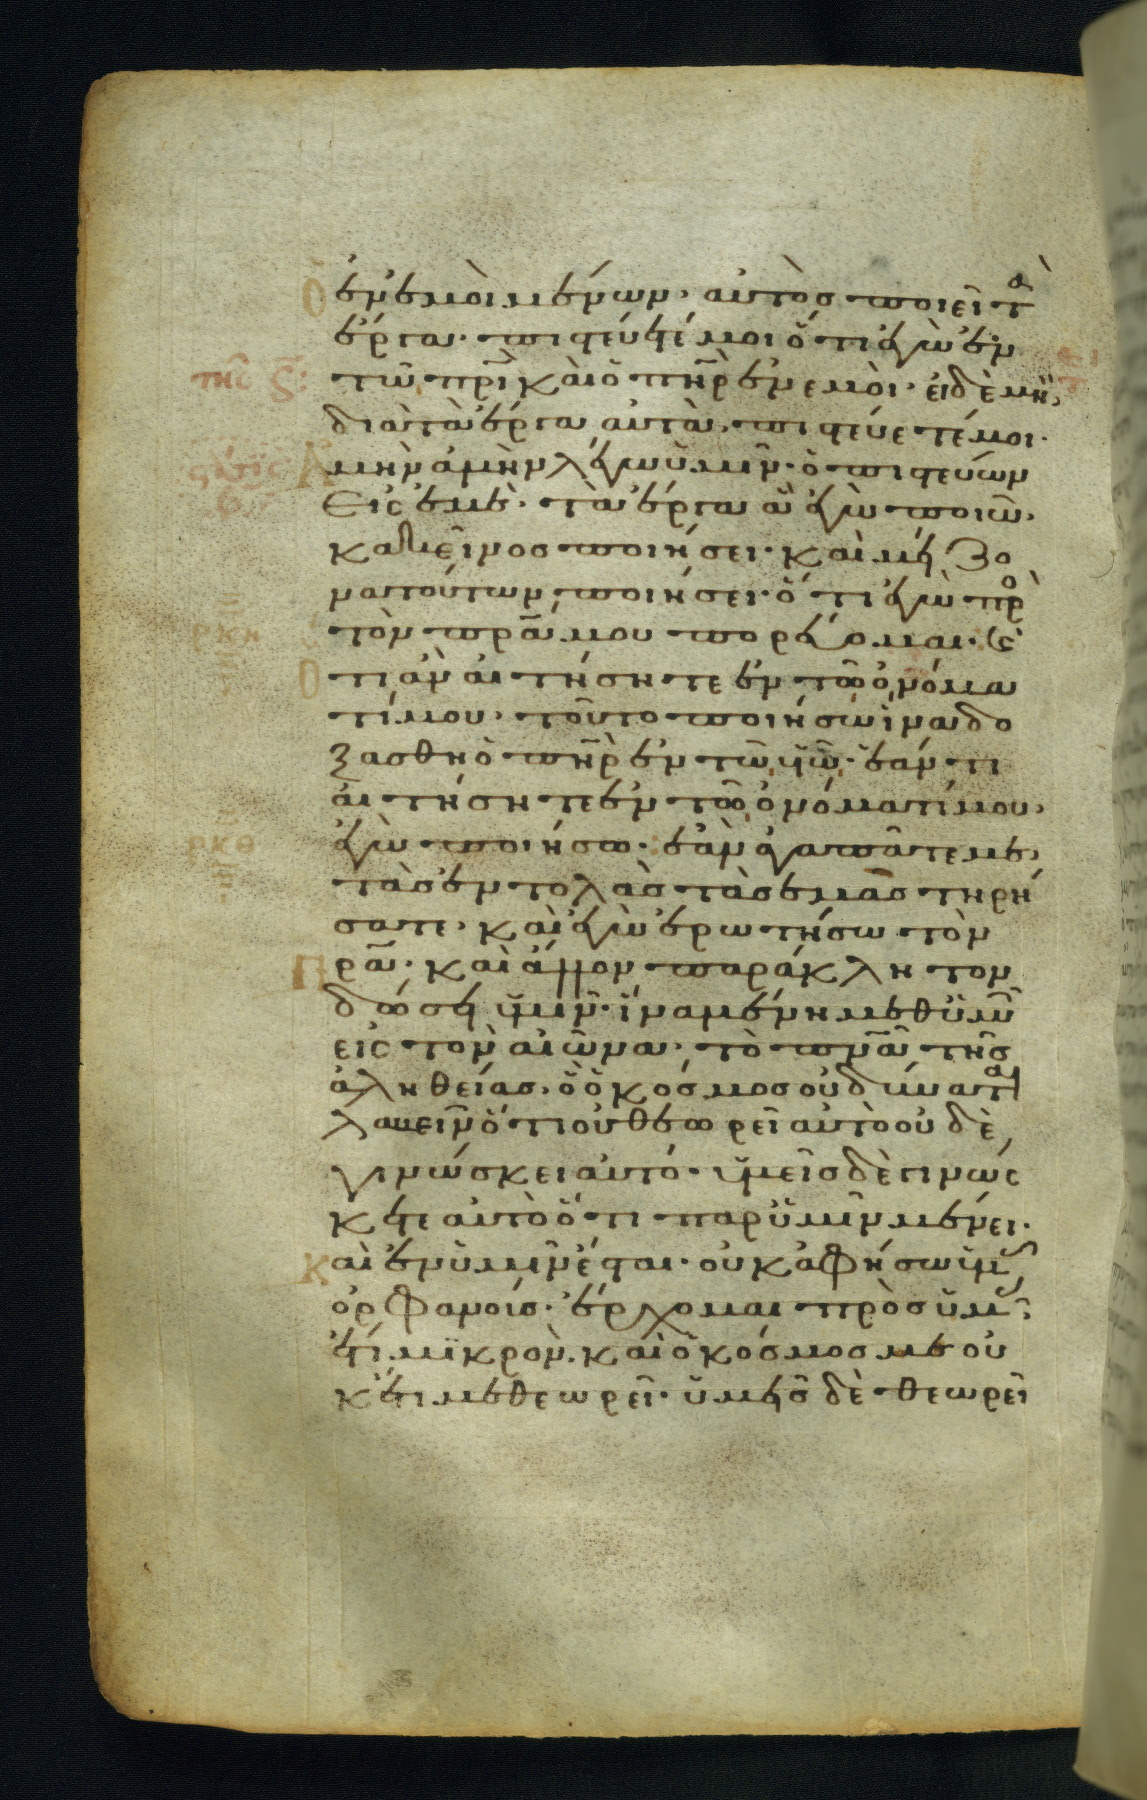 ὁ ἐν ἐμοὶ μένων· αὐτὸς ποιεῖ τὰ
ἔργα· πιστεύετέ μοι ὅτι ἐγὼ ἐν
τῶ πρὶ καὶ ὁ πηρ ἐν ἐμοὶ· εἰ δὲ μὴ,
διὰ τὰ ἔργα αὐτὰ, πιστεύετέ μοι·
Ἀμὴν ἀμὴν λέγω ὑμῖν· ὁ πιστεύων
εἰς ἐμὲ· τὰ ἔργα ἃ ἐγὼ ποιῶ,
κακεῖνος ποιήσει· καὶ μείζο
να τούτων ποιήσει· ὅτι ἐγὼ πρὸ
τὸν πρα μου πορεύομαι· καὶ
ὅτι ἂν αἰτήσητε ἐν τῶ ὀνόμα
τί μου, τοῦτο ποιήσω ἵνα δο
ξασθῆ ὁ πηρ ἐν τῶ υἱῶ· ἐάν τι
αἰτήσητε ἐν τῶ ὀνόματί μου,
ἐγὼ ποιήσω· ἐὰν ἀγαπᾶτέ με,
τὰς ἐντολὰς τὰς ἐμὰς τηρή
σατε· καὶ ἐγὼ ἐρωτήσω τὸν
πρα· καὶ ἄλλον παράκλητον
δώσει ὑμῖν· ἵνα μένη μεθ ὑμῶν
εἰς τὸν αἰῶνα· τὸ πνα τῆς
ἀληθείας, ὃ ὁ κόσμος οὐ δύναται
λαβεῖν ὅτι οὐ θεωρεῖ αὐτὸ οὐδὲ
γινώσκει αὐτό· ὑμεῖς δὲ γινώσ
κετε αὐτὸ ὅτι παρ ὑμῖν μένει·
καὶ ἐν ὑμῖν ἔσται· οὐκ ἀφήσω ὑμᾶς
ὀρφανοίς· ἔρχομαι πρὸς ὑμᾶς·
ἔτι μικρὸν· καὶ ὁ κόσμος με οὐ
κέτι με θεωρεῖ· ὑμεῖς δὲ θεωρεῖ
τῆς ϛ:
ρκη
ρκθ